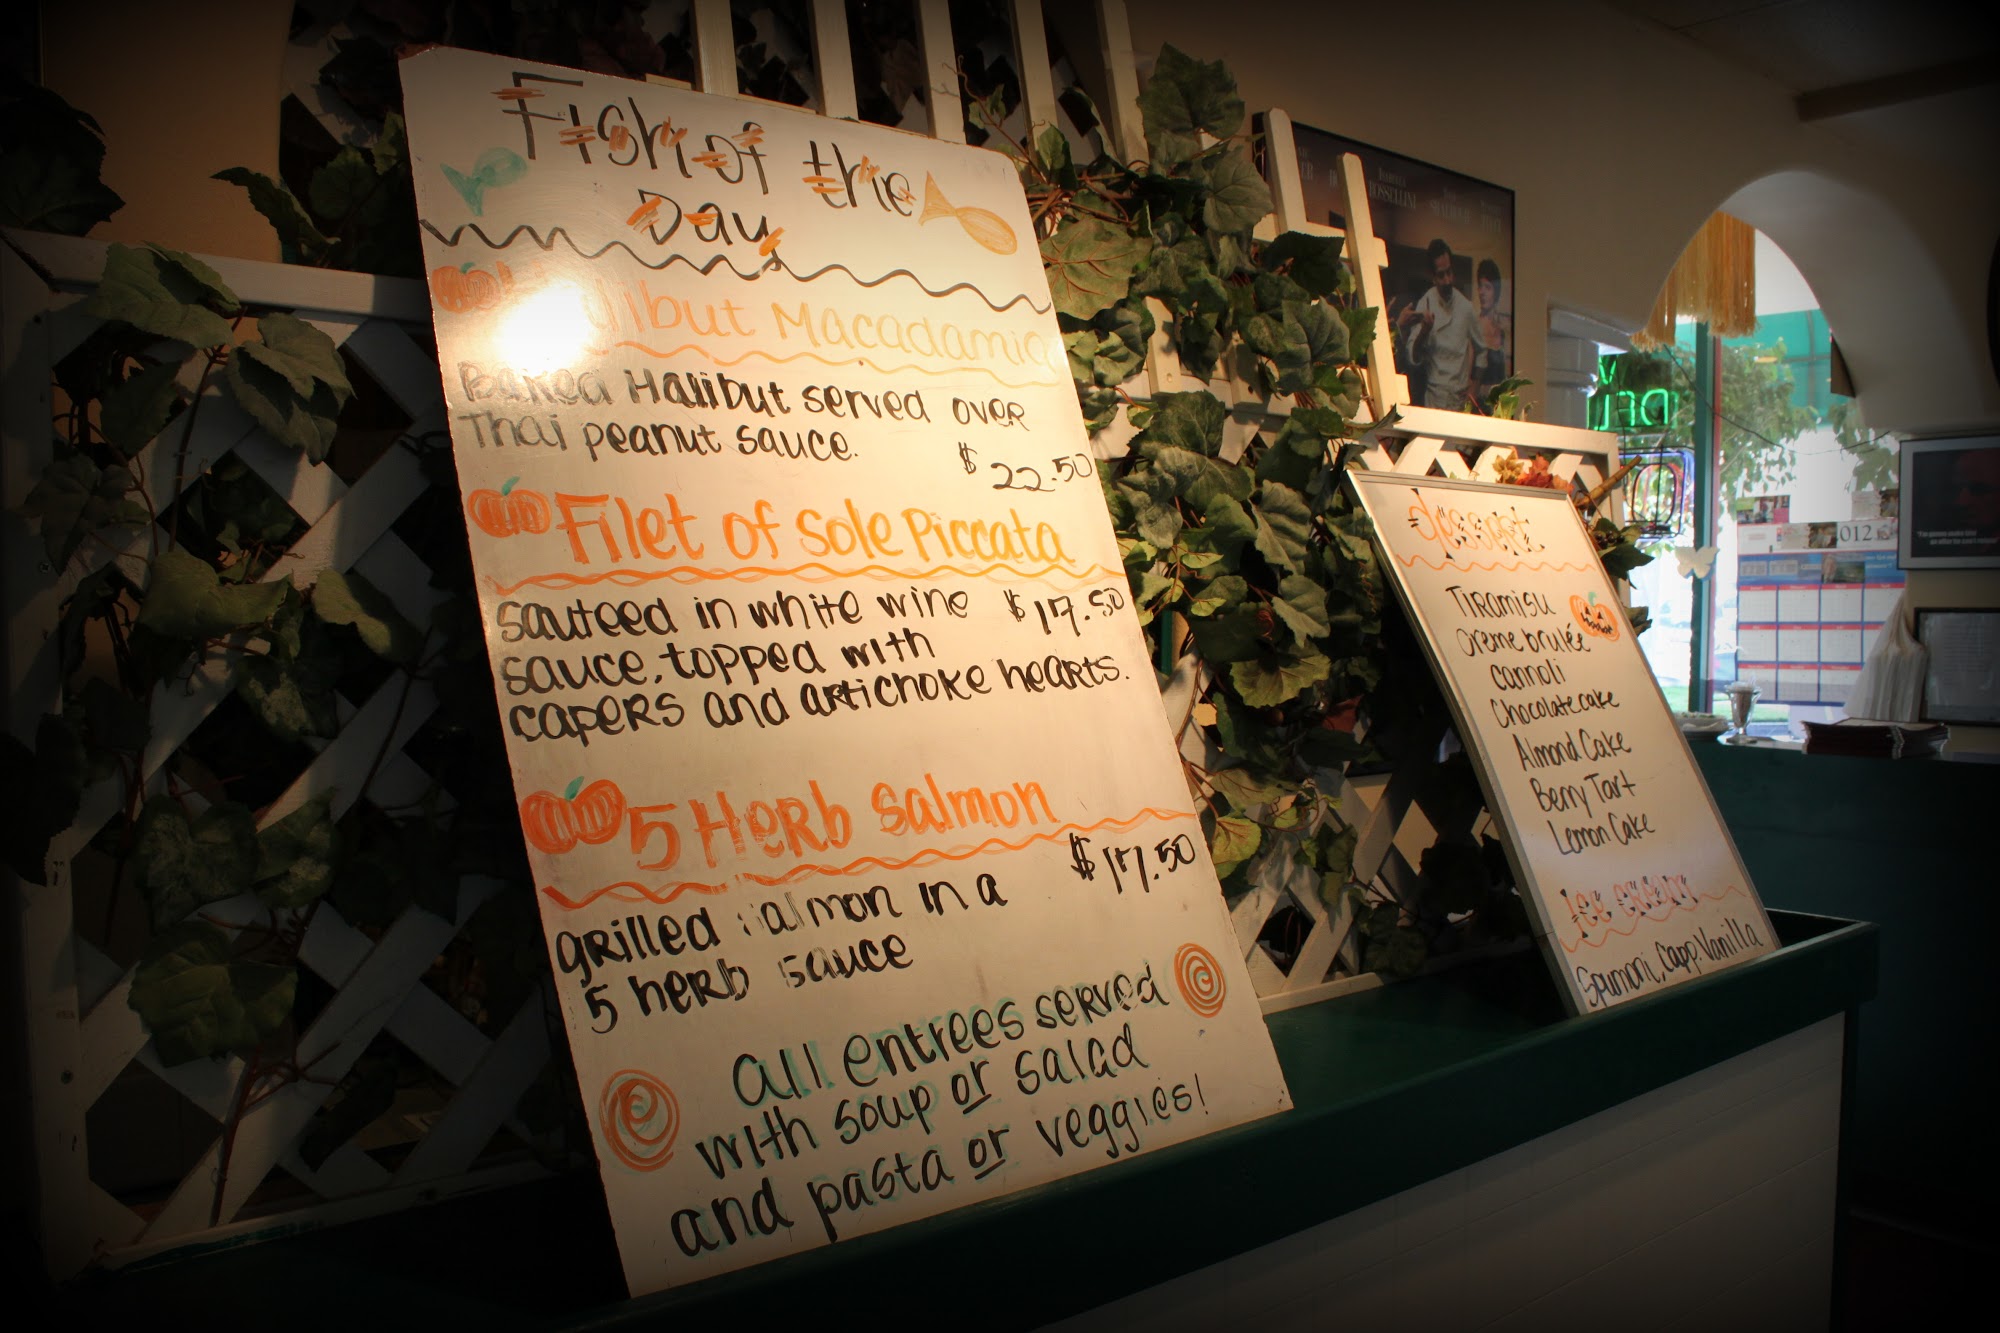 Fish of the
Day
Halibut Macadamia
Baked Halibut served over
Thai peanut sauce.
$ 22.50
Filet of Sole Piccata
sauteed in white wine $17.50
sauce, topped with
capers and artichoke hearts.
5 Herb Salmon
$17.50
grilled salmon in a
5 herb sauce
all entrees served
with soup or salad
and pasta or veggies!
dessert
Tiramisu
Creme brulée
cannoli
Chocolate cake
Almond Cake
Berry Tart
Lemon Cake
Ice cream
Spumoni, Capp. Vanilla
ROSSELLINI
012